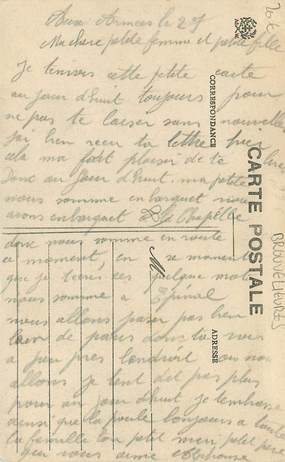 Aux Armées le 29
Ma chere petite femme et petite fille
Je t'envers cette petite carte
au jour d'huit toujours pour
ne pas te laiser sans nouvelles
j'ai bien recu ta lettre hier
cela ma fait plaisir de te lire
Donc au jour d'huit ma petite
nous somme enbarquet nous
avons enbarquet a La Chapelle
donc nous somme en route
ce moment, en se moment
que je t'ecris ces quelque mots
nous somme a Epinal
nous allons paser pas bien
loin de
a peu pres l'endroit ou nous
allons je tent dit pas plus
pour au jour d'huit je t'embrasse
ainsi que la poule bonjours a toute
la famille ton petit mari, petit pere
qui vous aime
CARTE POSTALE
CORRESPONDANCE
ADRESSE
M
BROUVELIEURES
20 €